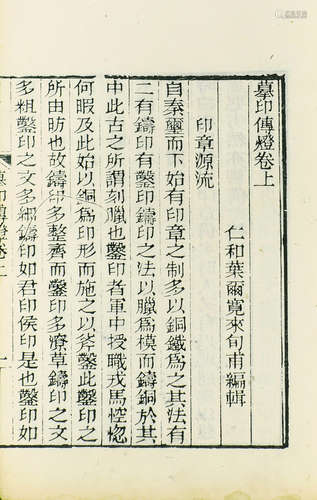 摹印傳燈卷上
仁和葉爾寬來旬甫編輯
印章源流
自秦璽而下始有印章之制多以銅鐵爲之其法有
二有鑄印有鑿印鑄印之法以臘爲模而鑄銅於其
中此古之所謂刻臘也鑿印者軍中授職戎馬悾惚
何暇及此始以銅爲印形而施之以斧鑿此鑿印之
所由昉也故鑄印多整齊而鑿印多潦草鑄印之文
多粗鑿印之文多細鑄印如君印侯印是也鑿印如
摹印傳燈卷上
一